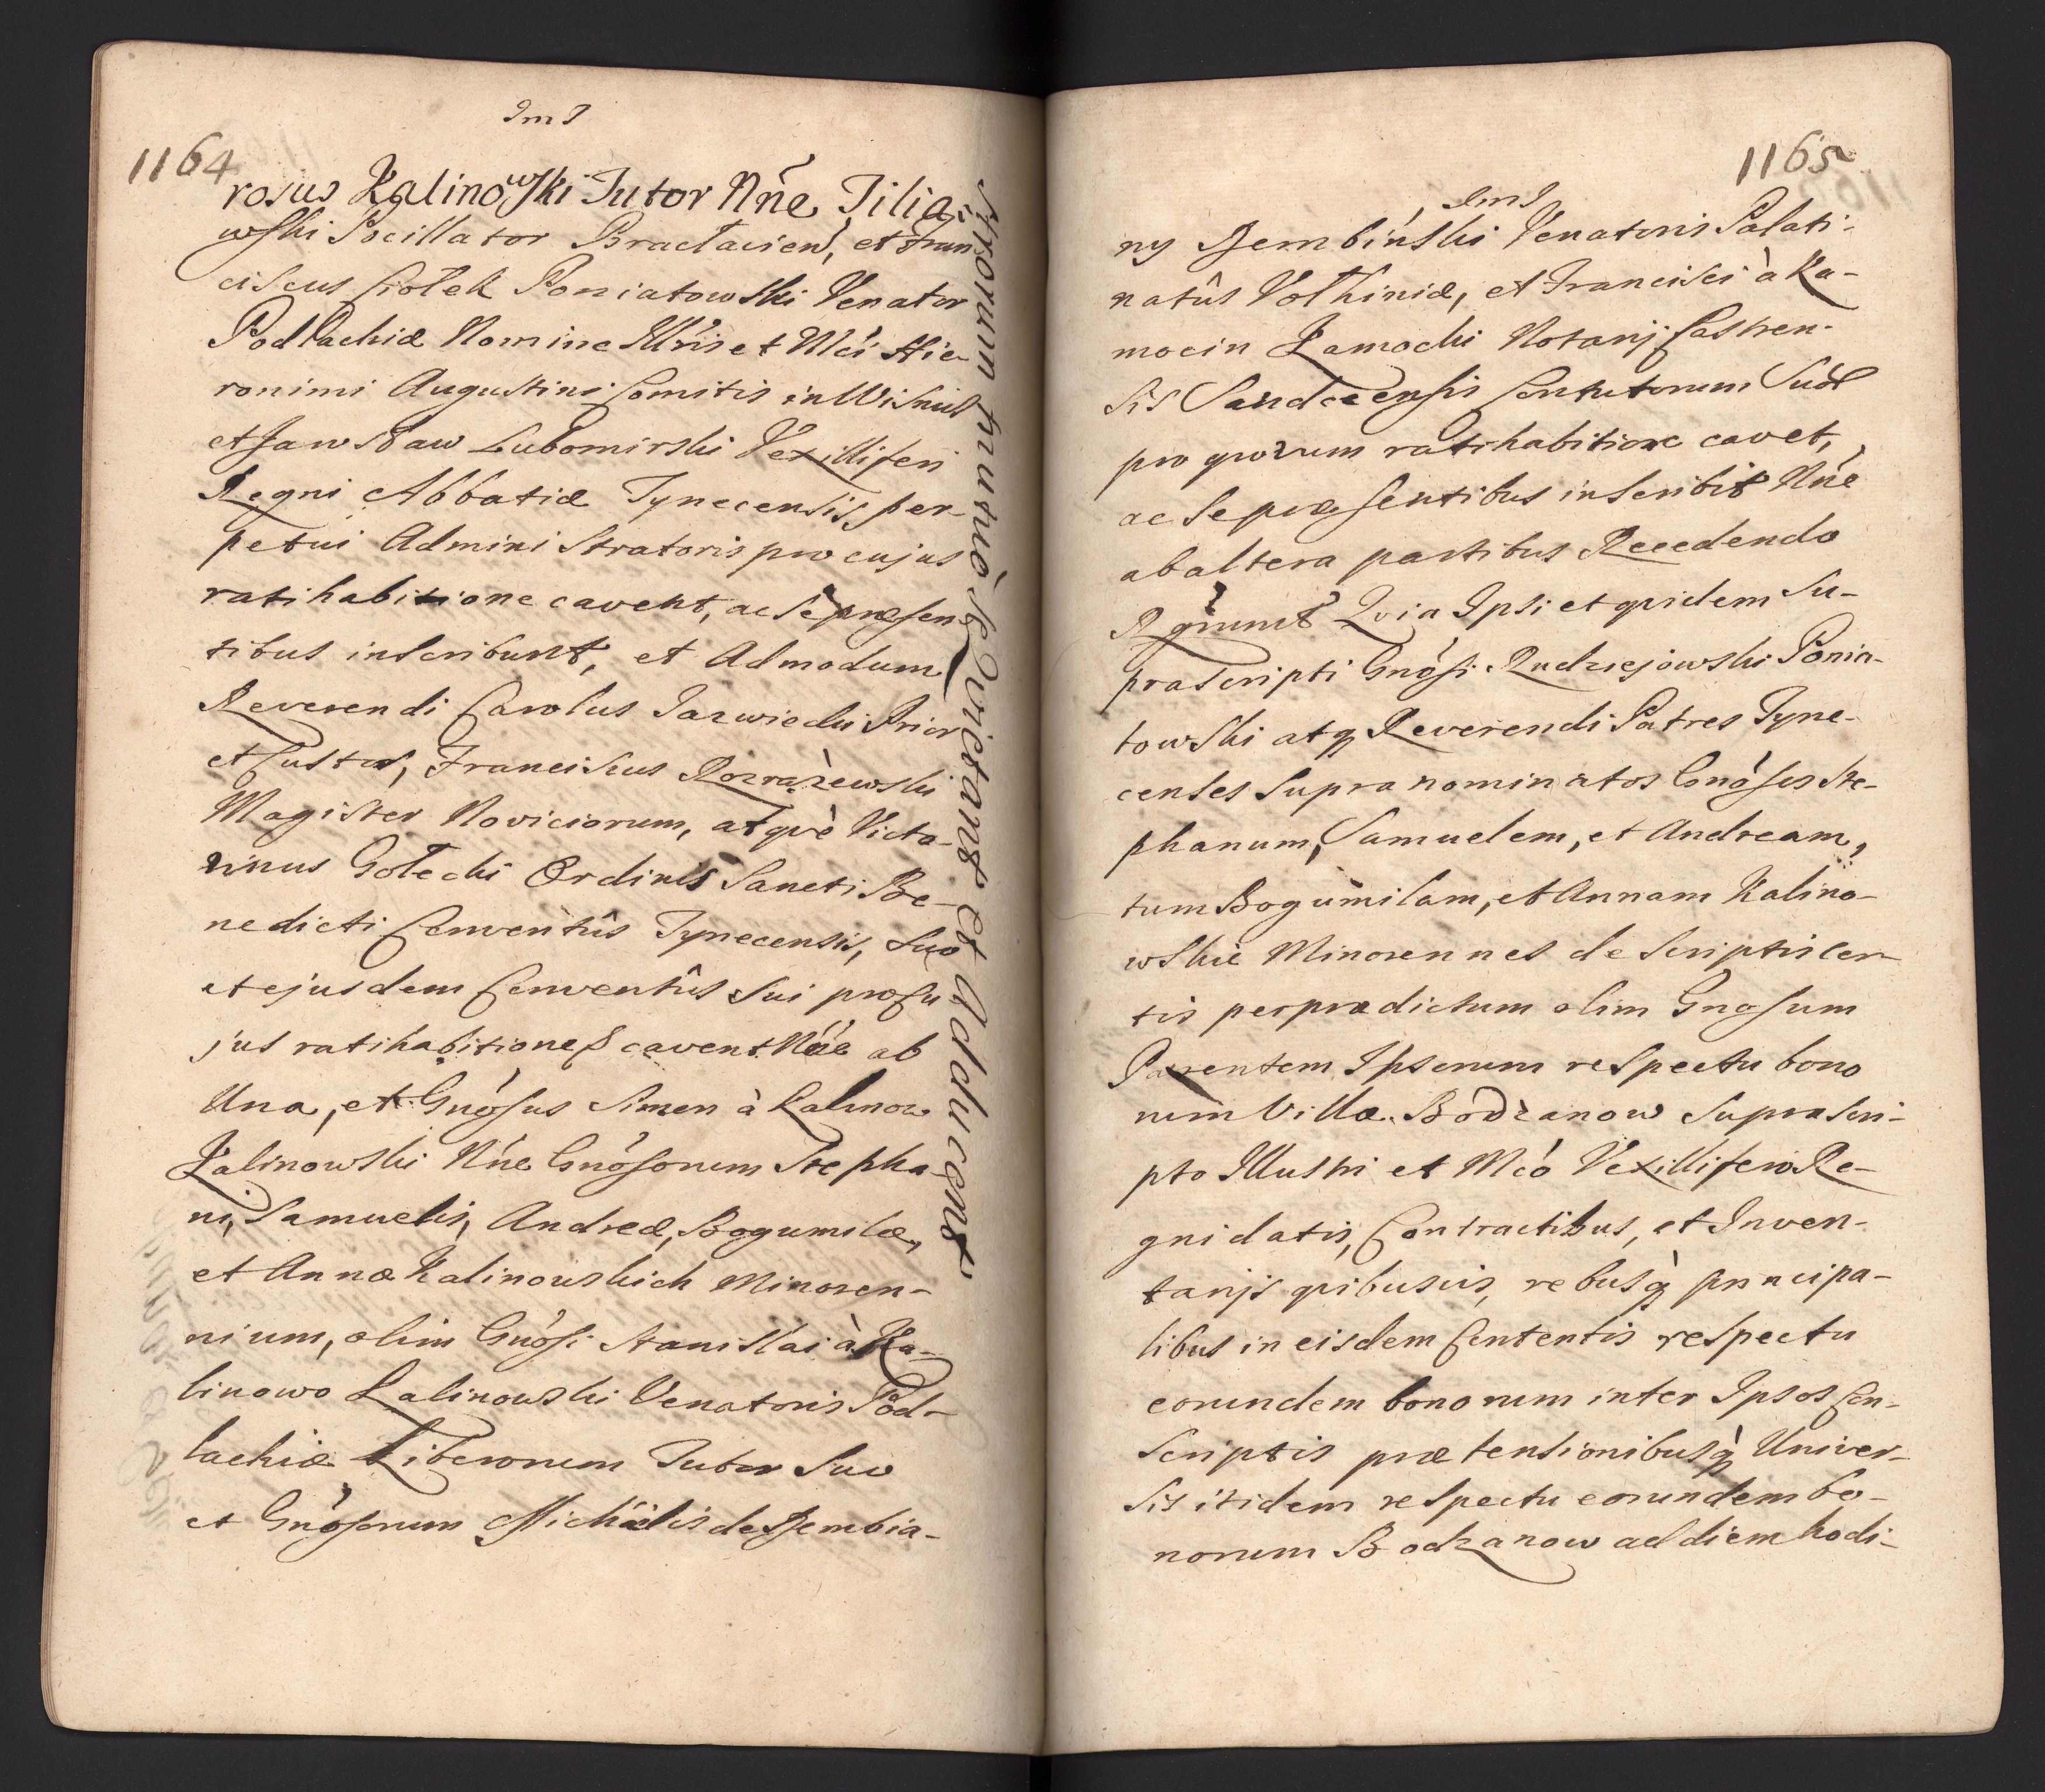 JmJ
1164
rosus Kalinowski Tutor Nñe Filia-
wski Pocillator Braclavien, et Fran
ciscus Ciołek Poniatowski Venator
Podlachiæ Nomine Illris et Mci Hie-
ronimi Augustini Comitis in Wisnicz
et Jarosław Lubomirski Vexilliferi
Regni Abbatiæ Tynecensis per-
petui Administratoris pro cujus
ratihabitione cavent, ac se præsen-
tibus inscribunt, et Admodum
Reverendi Carolus Jazwiecki Prior
et Custos, Franciscus Rozrażewski
Magister Noviciorum, atquè Victo-
rinus Gołecki Ordinis Sancti Be-
nedicti Conventûs Tynecensis, suo
et ejusdem Conventûs sui pro cu
jus ratihabitione cavent Nñe ab
Una, et Gnósus Simon à Kalinow
Kalinowski Nñe Gnósorum Stepha-
ni, Samuelis, Andreæ, Bogumilæ,
et Annæ Kalinowskich Minoren-
nium, olim Gnósi Stanislai à Ka-
linowo Kalinowski Venatoris Pod-
lachiæ Liberorum Tutor suo
et Gnósorum Michaelis de Dembia-
filiorum trusiè se Quietant et Adducent
1165
JmJ
ny Dembinski Venatoris Palati-
natûs Volhiniæ, et Francisci à Ka-
mocin Kamocki Notarij Castren-
sis Sandecensis Contutorum suór
pro quorum ratihabitione cavet,
ac se præsentibus inscribit Nñe
ab altera partibus Recedendo
Rgnunt Quia Ipsi et quidem Su-
prascripti Gnósi Rudziejowski Ponia-
towski atq Reverendi Patres Tyne-
censes supra nominatos Gnósos Ste-
phanum, Samuelem, et Andream,
tum Bogumilam, et Annam Kalino-
wskie Minorennes de scriptis cer-
tis per prædictum olim Gnosum
Parentem Ipsorum respectu bono
rum Villæ Bodzanow suprascri-
pto Illustri et Mcó Vexillifero Re-
gni datis, Contractibus, et Inven-
tarijs quibusvis, rebusq principa-
libus in eisdem Contentis respectu
eorundem bonorum inter Ipsos Con-
scriptis prætensionibusq Univer-
sis itidem respectu eorundem bo-
norum Bodzanow ad diem hodi-